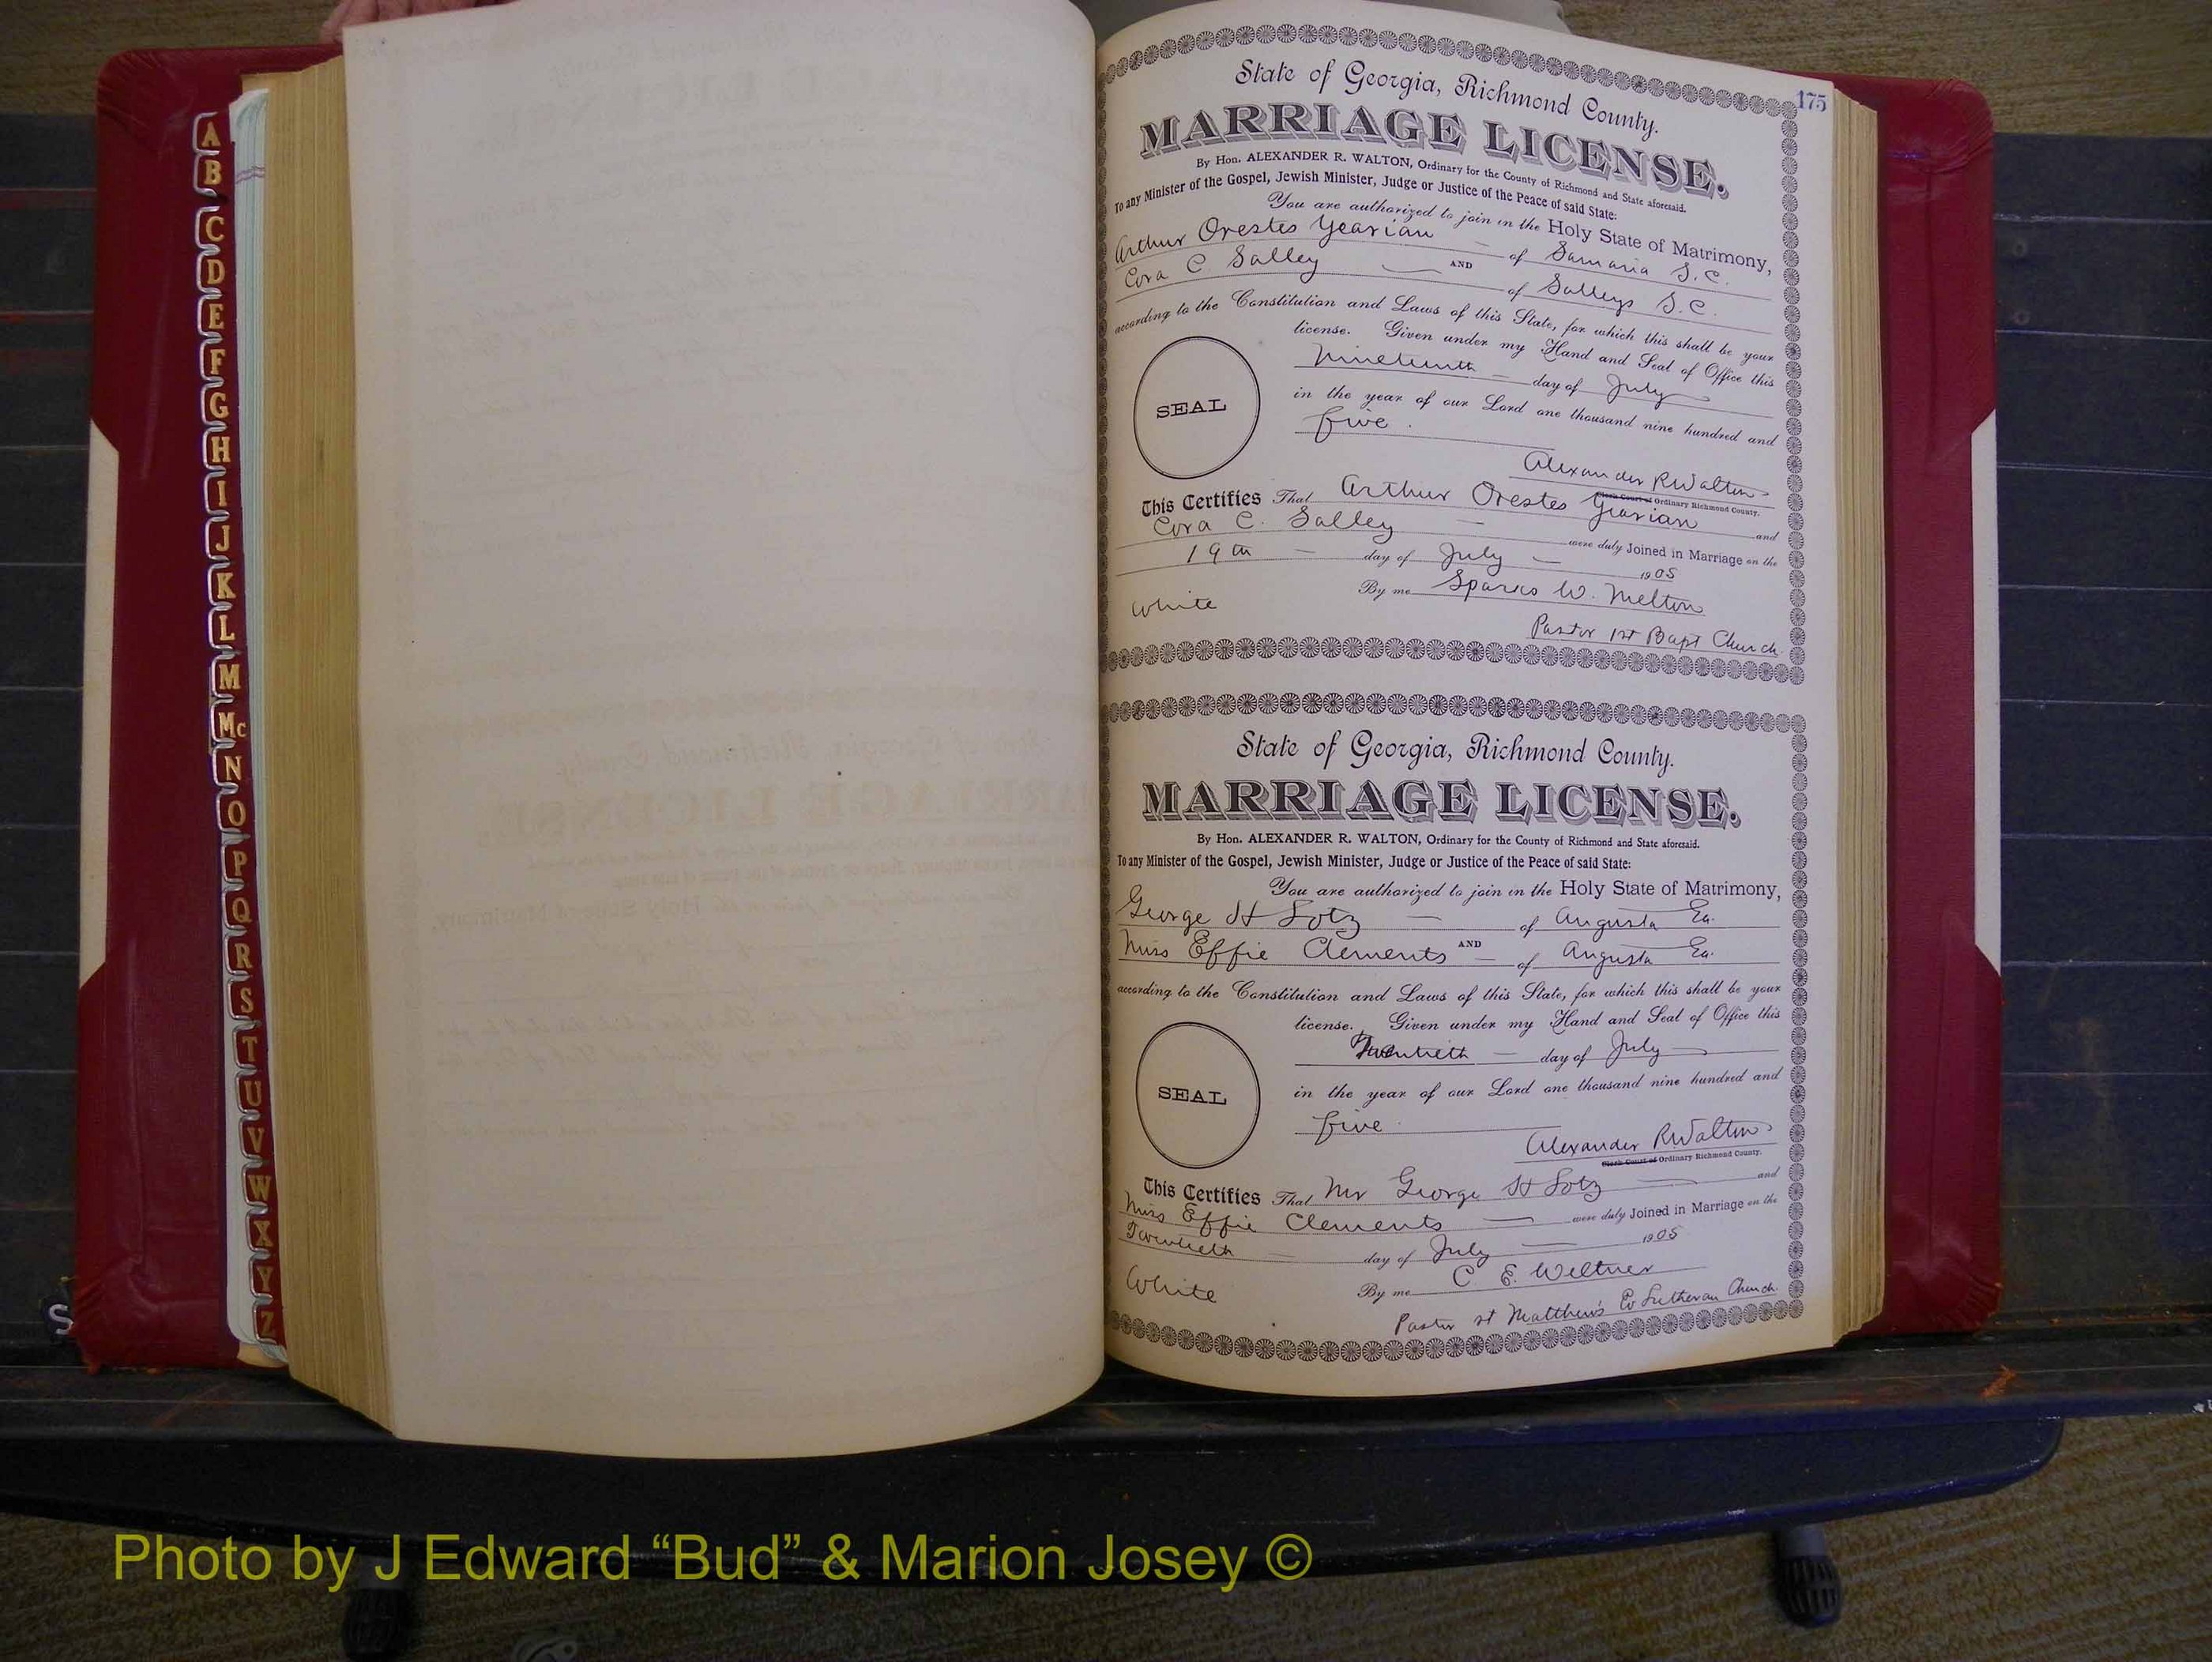 A
B
C
D
E
F
G
H
I
J
K
L
M
Mc
N
O
P
Q
R
S
T
U
V
W
X
Y
Z
175
State of Georgia, Richmond County.
MARRIAGE LICENSE.
By Hon. ALEXANDER R. WALTON, Ordinary for the County of Richmond and State aforesaid.
To any Minister of the Gospel, Jewish Minister, Judge or Justice of the Peace of said State:
You are authorized to join in the Holy State of Matrimony,
Arthur Orestes Yearian of Samaria S.C.
AND
Cora C Salley of Salleys S.C.
according to the Constitution and Laws of this State, for which this shall be your
license. Given under my Hand and Seal of Office this
Nineteenth day of July
in the year of our Lord one thousand nine hundred and
five.
SEAL
Alexander R Walton
Clerk Court of Ordinary Richmond County.
This Certifies That Arthur Orestes Yearian and
Cora C. Salley were duly Joined in Marriage on the
19th day of July 1905
By me Sparks W. Melton
White
Pastor 1st Bapt Church
State of Georgia, Richmond County.
MARRIAGE LICENSE.
By Hon. ALEXANDER R. WALTON, Ordinary for the County of Richmond and State aforesaid.
To any Minister of the Gospel, Jewish Minister, Judge or Justice of the Peace of said State:
You are authorized to join in the Holy State of Matrimony,
George H Lotz of Augusta Ga.
AND
Miss Effie Clements of Augusta Ga.
according to the Constitution and Laws of this State, for which this shall be your
license. Given under my Hand and Seal of Office this
Twentieth day of July
in the year of our Lord one thousand nine hundred and
five
SEAL
Alexander R Walton
Clerk Court of Ordinary Richmond County.
This Certifies That Mr George H Lotz and
Miss Effie Clements were duly Joined in Marriage on the
Twentieth day of July 1905
By me C. E. Weltner
White
Pastor St Matthew's Ev Lutheran Church
Photo by J Edward “Bud” & Marion Josey ©